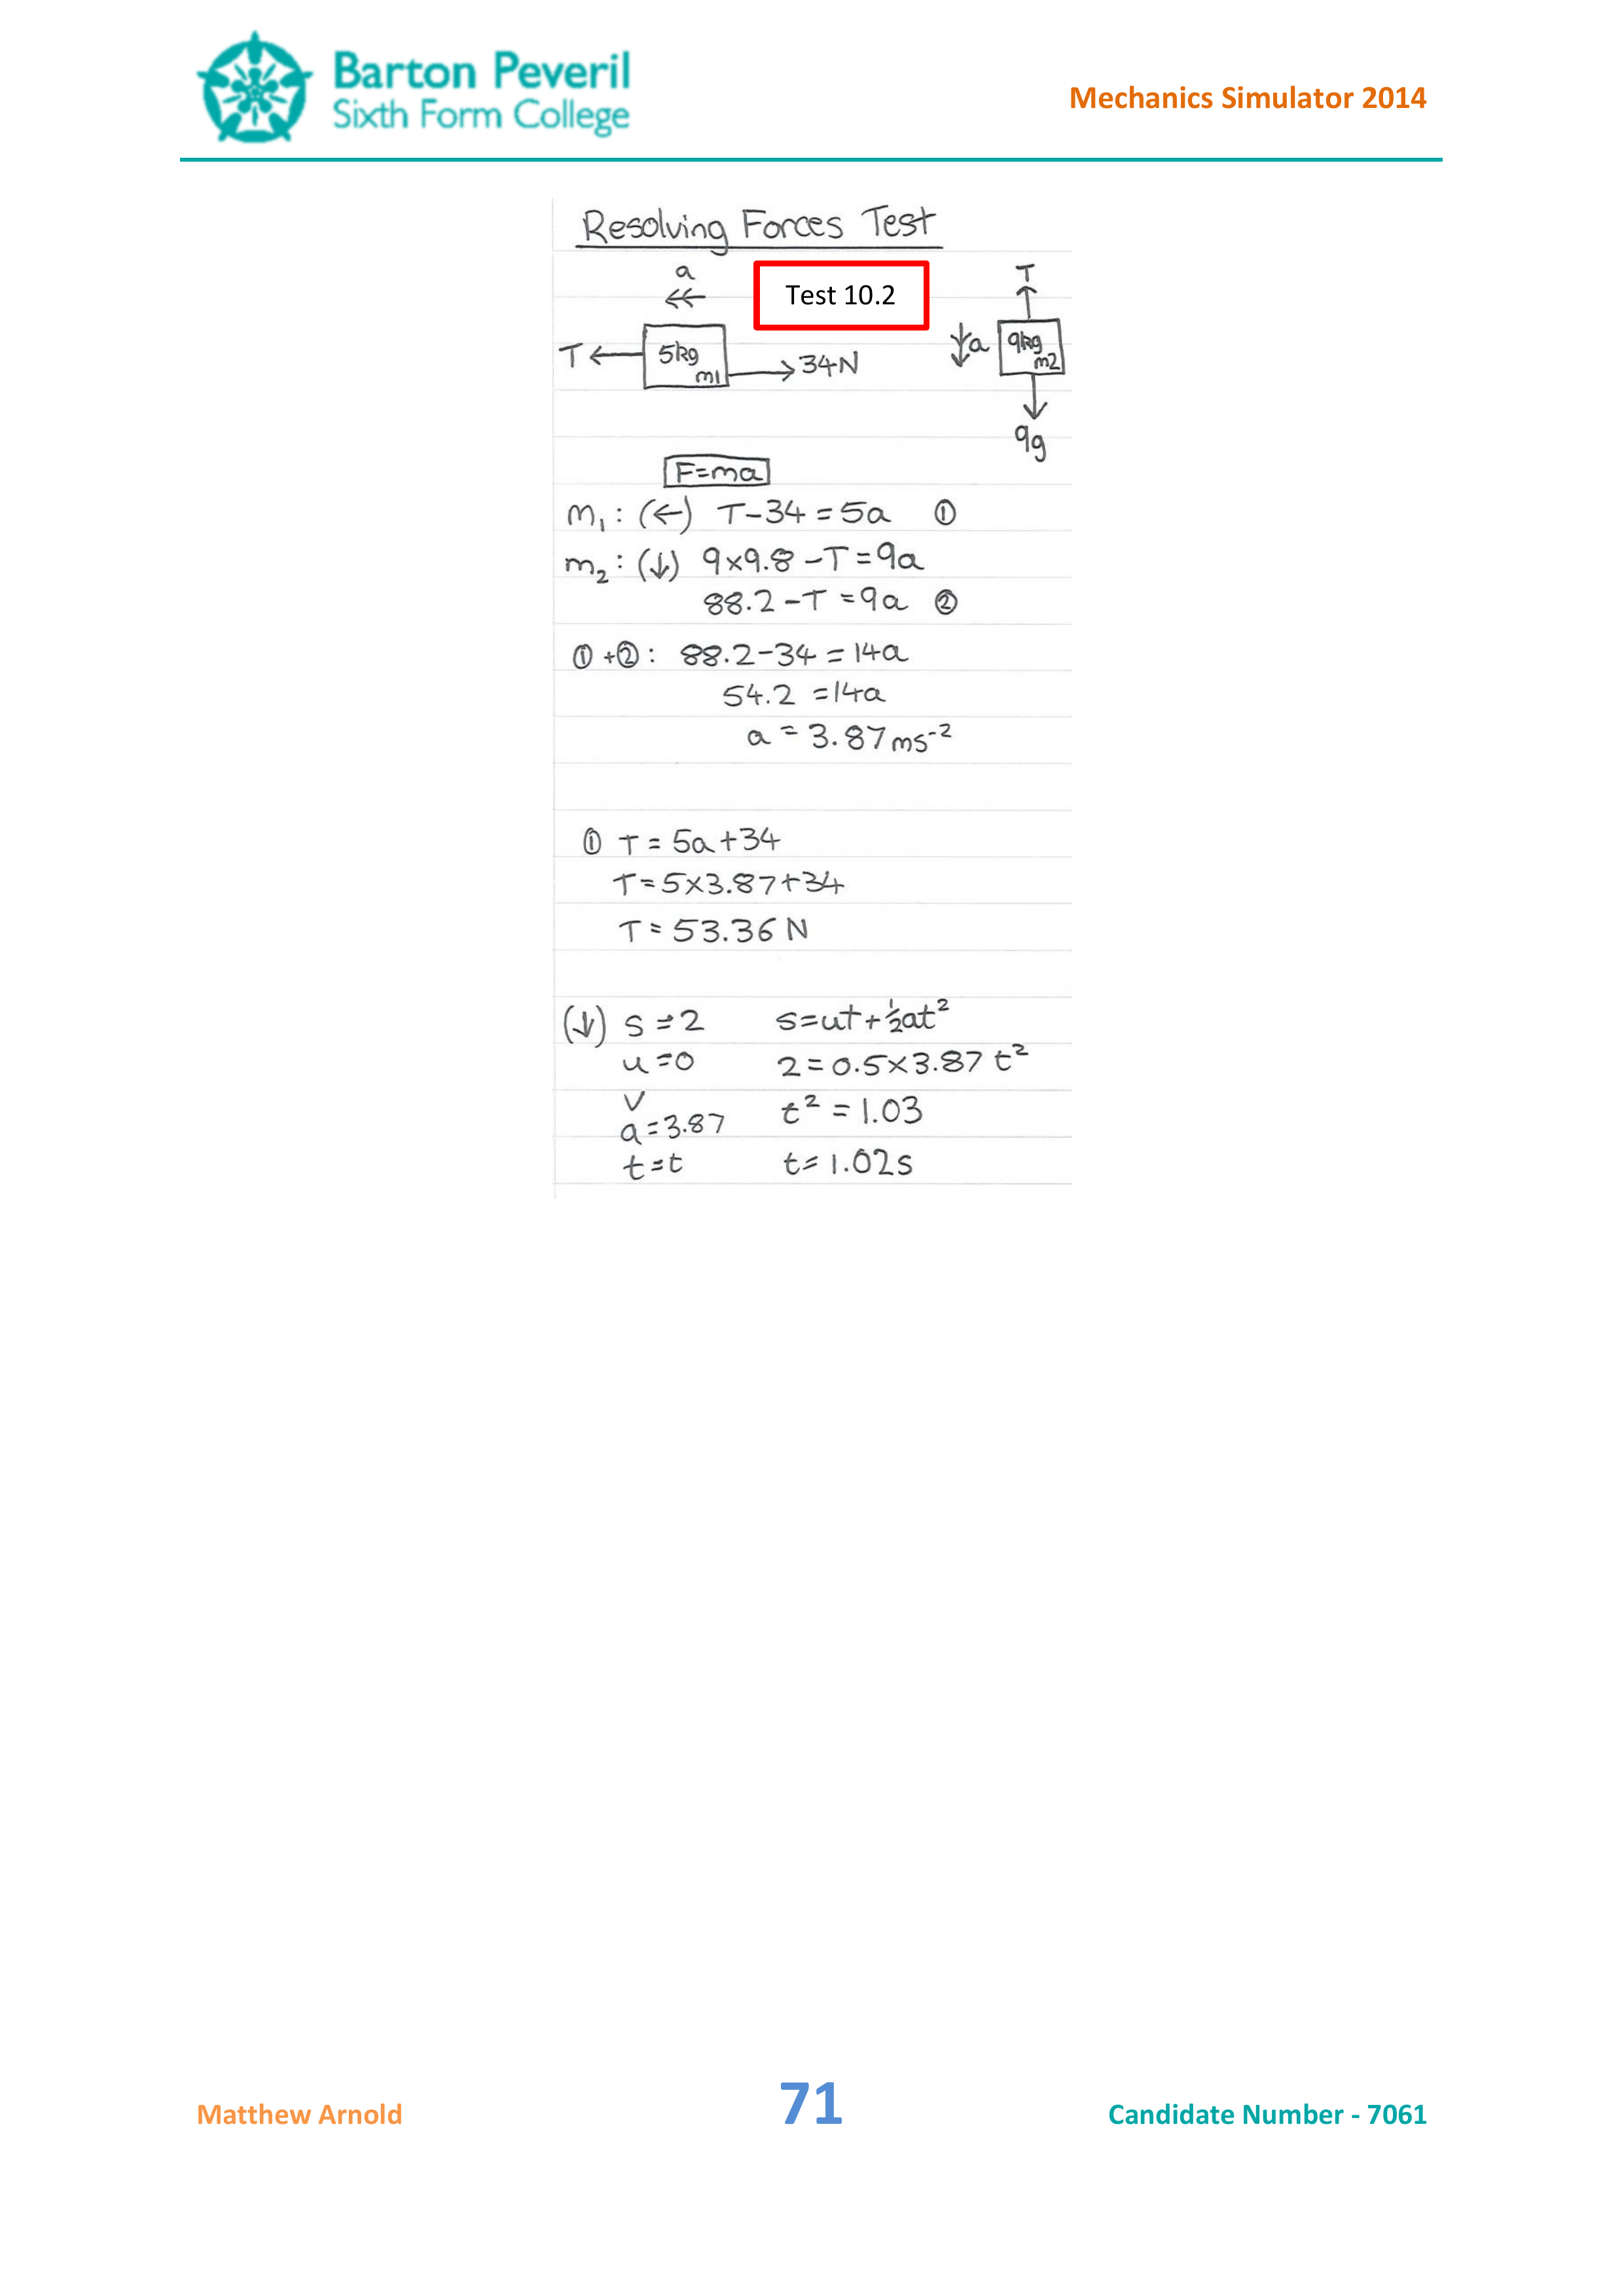 Barton Peveril
Sixth Form College
Mechanics Simulator 2014
Resolving Forces Test
a
Test 10.2
T
T 5kg m1 34N
a 9kg m2
9g
F=ma
m₁: (←) T-34=5a ①
m₂: (↓) 9×9.8-T=9a
88.2-T=9a ②
①+②: 88.2-34=14a
54.2=14a
a=3.87ms⁻²
① T=5a+34
T=5×3.87+34
T=53.36N
(↓) s=2 s=ut+½at²
u=0 2=0.5×3.87t²
v t²=1.03
a=3.87
t=t t=1.02s
Matthew Arnold
71
Candidate Number - 7061